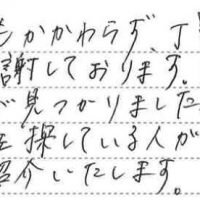 もかかわらず、丁
謝しております。
が見つかりました
を探している人が
紹介いたします。